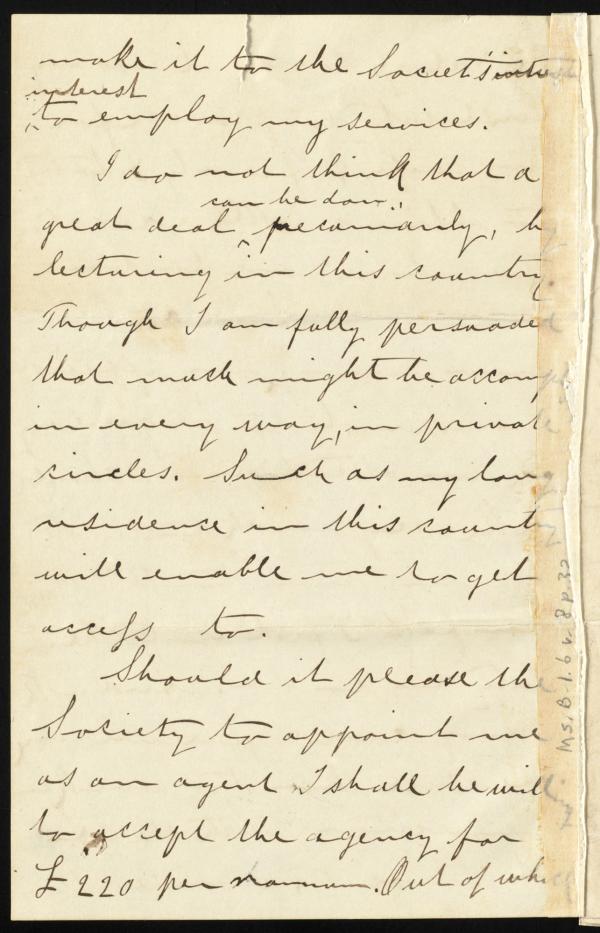 make it to the Societ's
interest
to employ my services.
I do not think that a
can be don
great deal ^ pecuniarily, b
lecturing in this country
Though I am fully persuaded
that much might be accompl
in every way, in private
circles. Such as my long
residence in this count
will enable me to get
access to.
Should it please the
Society to appoint me
as an agent I shall be will
to accept the agency for
£220 per annum. Out of whi
Ms. B. 1. 6 v. 8 p. 32